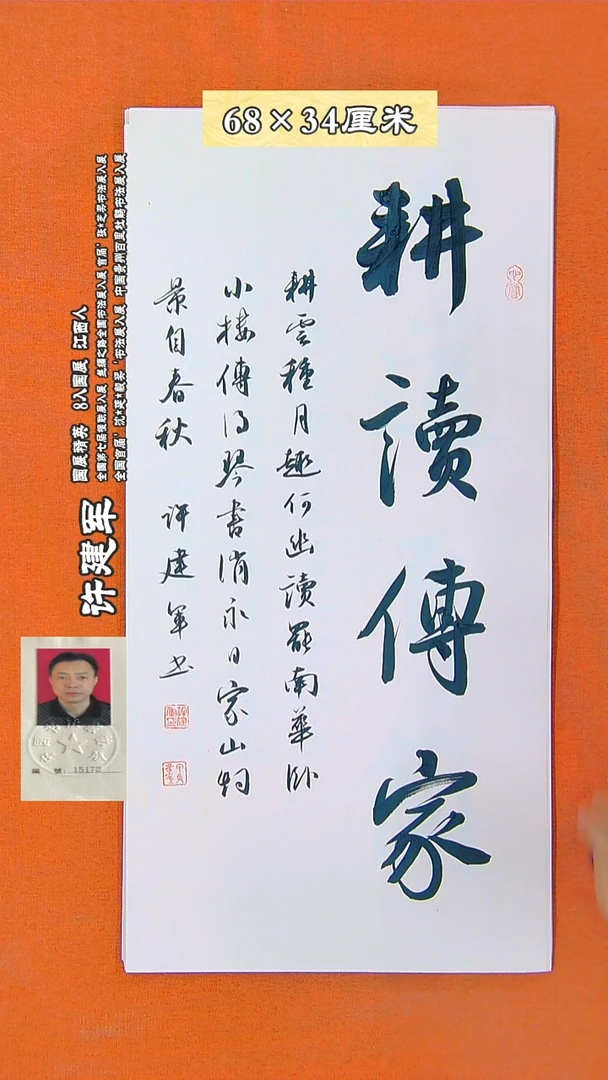 68×34厘米
耕讀傳家
耕雲種月趣何幽讀罷南華卧
小樓傳得琴書消永日家山物
景自春秋 許建軍書
许建军
国展精英 8入国展 江西人
全国第七届楹联展入展 丝绸之路全国书法展入展 首届‘张*芝奖书法展入展
全国首届‘沈*延*毅奖‘书法展入展 中国贵州百里杜鹃书法展入展
编 號: 15172